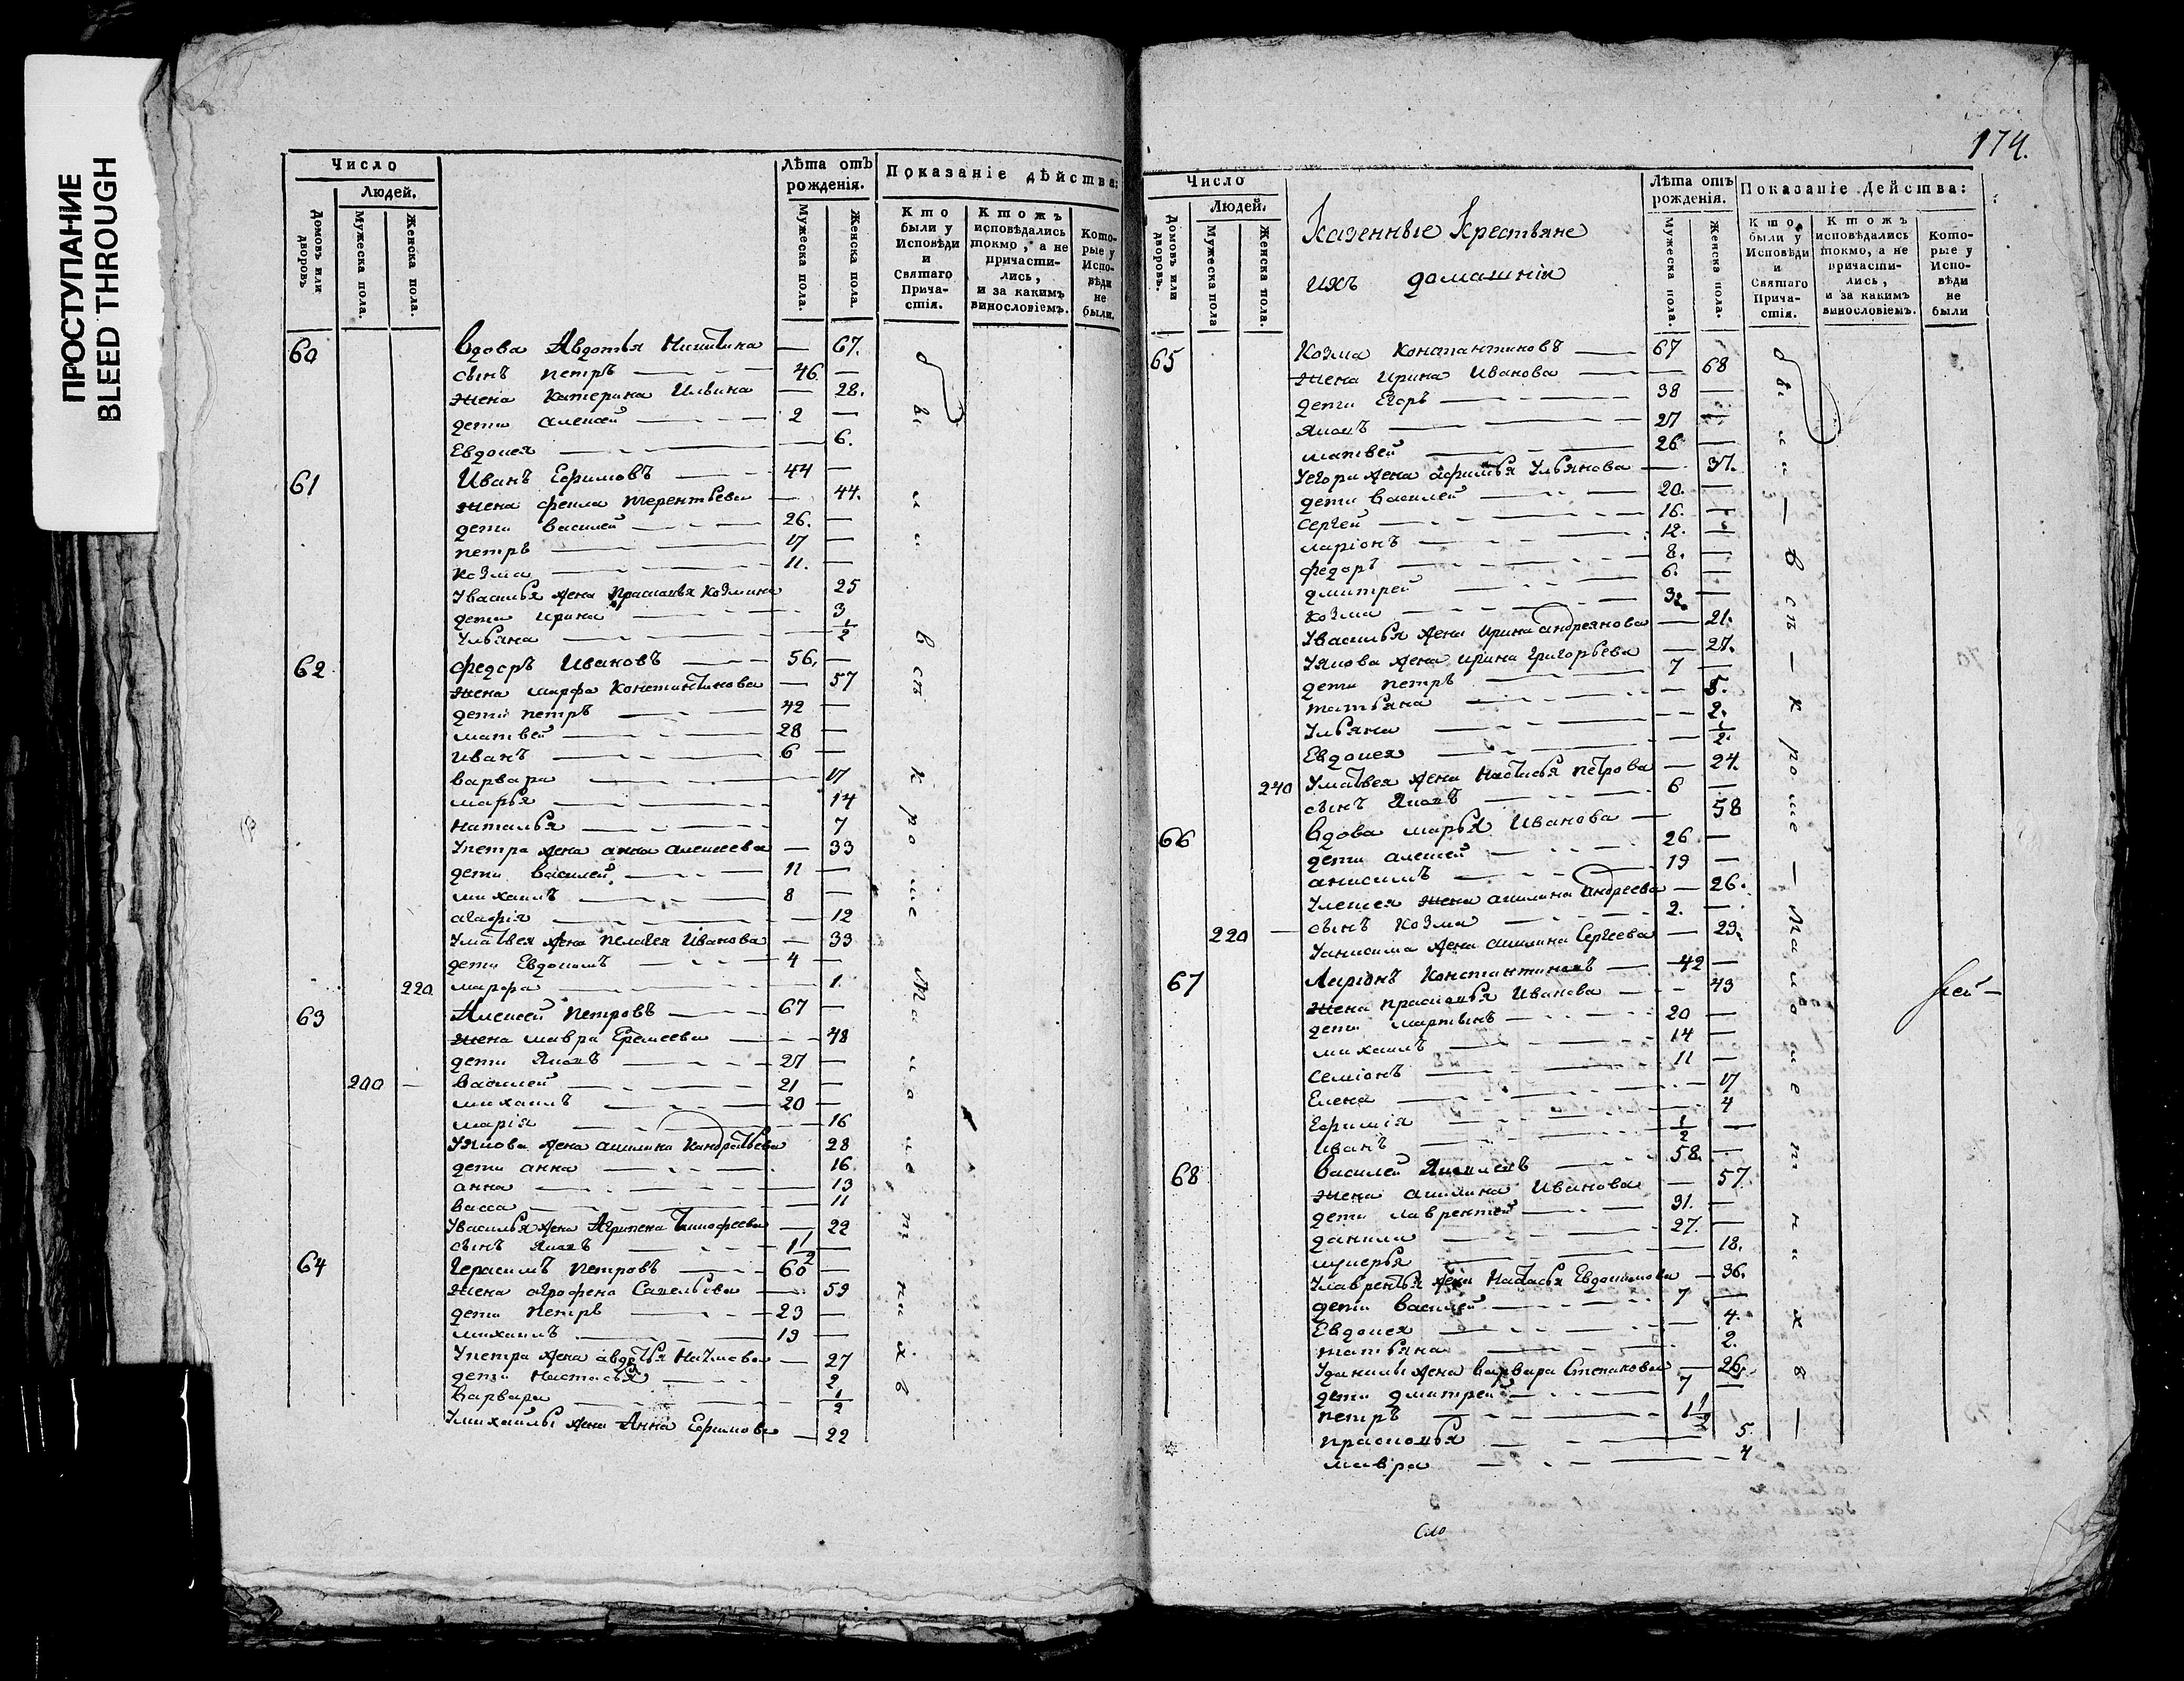 ПРОСТУПАНИЕ
BLEED THROUGH
Число
Людей.
Домовъ или дворовъ
Мужеска пола.
Женска пола.
Лѣта отъ рожденія.
Мужеска пола.
Женска пола.
Показаніе дѣйства:
Кто были у Исповѣди и Святаго Причастія.
Ктожъ исповѣдались токмо, а не причастились, и за какимъ винословіемъ.
Которые у Исповѣди не были.
60 Вдова Авдотья Никитина — 67.
сынъ петръ 46. —
жена Катерина Ильина — 28.
дети алексей 2 —
Евдокея — 6.
61 Иванъ Ефимовъ 44 —
жена фекла терентьева — 44.
дети василей 26. —
петръ 17 —
козма 11. —
Увасилья жена Прасковья Козмина 25
дети ирина 3
Ульяна 1/2
62 федоръ Ивановъ 56. —
жена марфа Константинова — 57
дети петръ 42 —
матвей 28 —
иванъ 6 —
варвара 17
марья 14
наталья 7
Упетра жена анна алексеева — 33
дети василей 11 —
михаилъ 8 —
агафія — 12
Уматвея жена пелагея Иванова — 33
дети Евдокимъ 4 —
220 марфа 1.
63 Алексей Петровъ 67 —
жена мавра Еремеева 48
дети Яковъ 27 —
200 — василей 21 —
михаилъ 20 —
марія 16
Уякова жена акилина Кандратьева 28
дети анна 16.
анна 13
васса 11
Увасилья жена Агрипена Тимофеева 22
сынъ Яковъ 1 1/2 —
64 Герасимъ Петровъ 60 —
жена агрофена Савельева 59
дети петръ 23 —
михаилъ 19 —
Упетра жена авдотья Наумова — 27
дети настасья 2
варвара 1/2
Умихайлы жена Анна Ефимова — 22
всѣ кроме малолетнихъ
174.
Число
Людей.
Домовъ или дворовъ.
Мужеска пола
Женска пола.
Казенные Крестьяне
ихъ домашніи
Лѣта отъ рожденія.
Мужеска пола.
Женска пола.
Показаніе Дейсшва:
Кто были у Исповѣди и Святаго Причастія.
Ктожъ исповѣдались токмо, а не причастились, и за какимъ винословіемъ.
Которые у Исповѣди не были
65 Козма Константиновъ 67
жена ирина Иванова — 68
дети Егоръ 38 —
Яковъ 27
матвей 26 —
Уегора жена афимья Ульянова — 37.
дети василей 20. —
сергей 16. —
ларіонъ 12. —
федоръ 8. —
дмитрей 6. —
козма
Увасилья жена ирина андреянова — 21.
Уякова жена ирина Григорьева — 27.
дети петръ 7 —
татьяна 5.
Ульяна 2.
Евдокея 1/2
240 Уматвея жена Настасья петрова — 24.
сынъ Яковъ 6 —
66 Вдова марья Иванова — 58
дети алексей 26 —
анисимъ 19 —
Улексея жена акилина андреева — 26.
220 — сынъ козма 2. —
Уанисима жена акилина Сергеева — 23.
67 Ларіонъ Константиновъ 42 —
жена прасковья Иванова 43
дети мартынъ 20 —
михаилъ 14 —
семіонъ 11 —
Елена 17
Ефимія 4
иванъ 1/2 —
68 василей Якимовъ 58. —
жена акилина Иванова — 57
дети лаврентей 31. —
данила 27. —
лукерья 18.
Улаврентья жена Настасья Евдокимова — 36.
дети василей 7 —
Евдокея — 4.
татьяна 2.
Уданилы жена варвара Степанова — 26.
дети дмитрей 7 —
петръ 1 1/2
прасковья 5
мавра 4
всѣ — кроме — малолетнихъ —
Сло